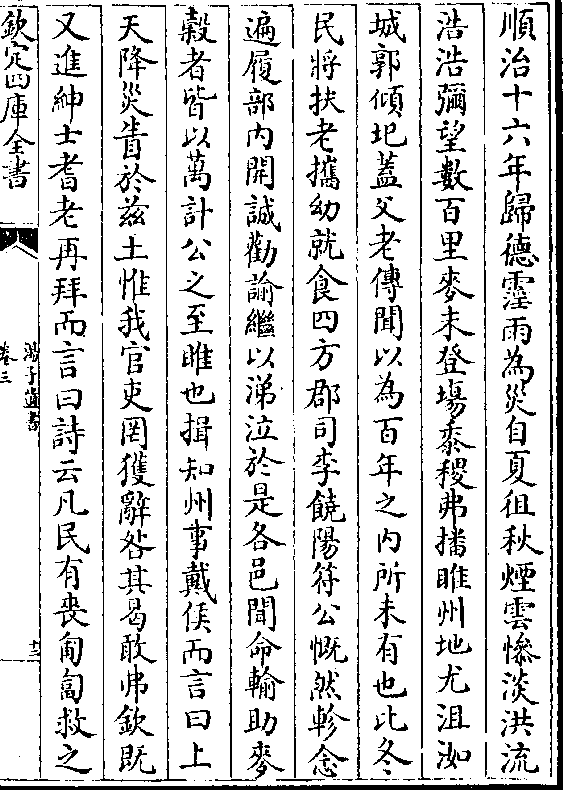 順治十六年歸德霪雨為災自夏徂秋煙雲慘淡洪流
浩浩彌望數百里麥未登場黍稷弗播睢州地尤沮洳
城郭傾圮蓋父老傳聞以為百年之內所未有也比冬
民將扶老攜幼就食四方郡司李饒陽符公慨然軫念
遍履部內開誠勸諭繼以涕泣於是各邑聞命輸助麥
榖者皆以萬計公之至睢也揖知州事戴侯而言曰上
天降災眚於茲土惟我官吏罔獲辭咎其曷敢弗欽既
又進紳士耆老再拜而言曰詩云凡民有喪匍匐救之
欽定四庫全書
湯子遺書
卷三
十三